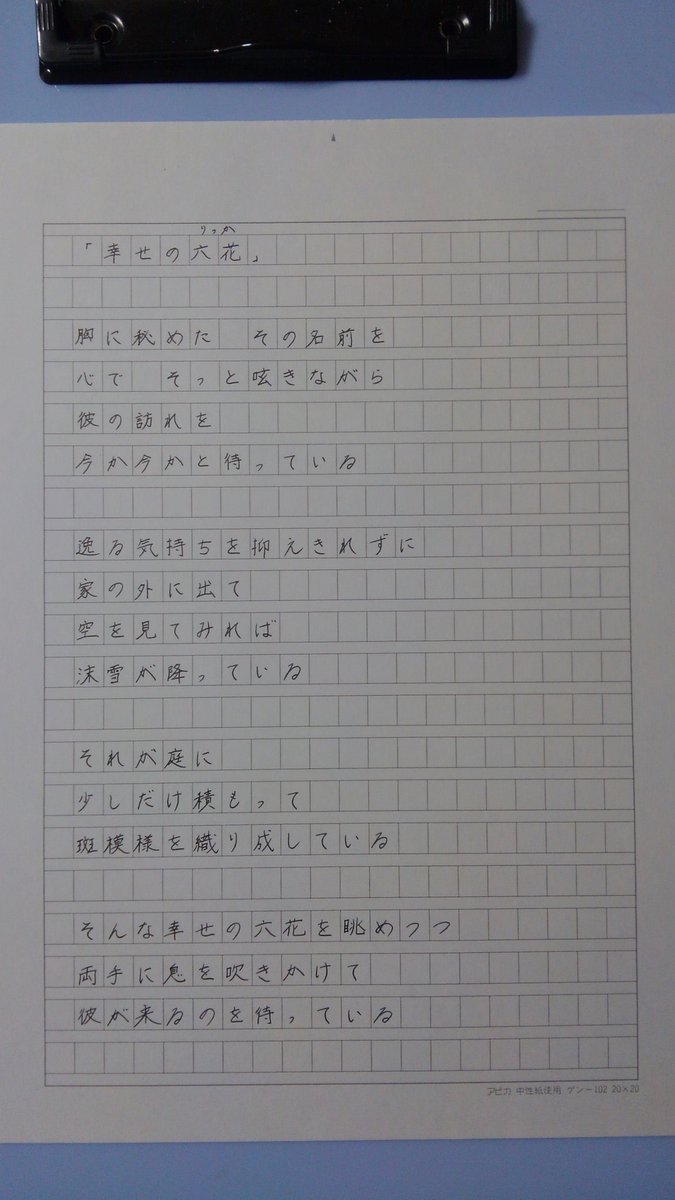 りっか
「幸せの六花」
胸に秘めた　その名前を
心で　そっと呟きながら
彼の訪れを
今か今かと待っている
逸る気持ちを抑えきれずに
家の外に出て
空を見てみれば
沫雪が降っている
それが庭に
少しだけ積もって
斑模様を織り成している
そんな幸せの六花を眺めつつ
両手に息を吹きかけて
彼が来るのを待っている
アピカ 中性紙使用 ゲンー102 20×20